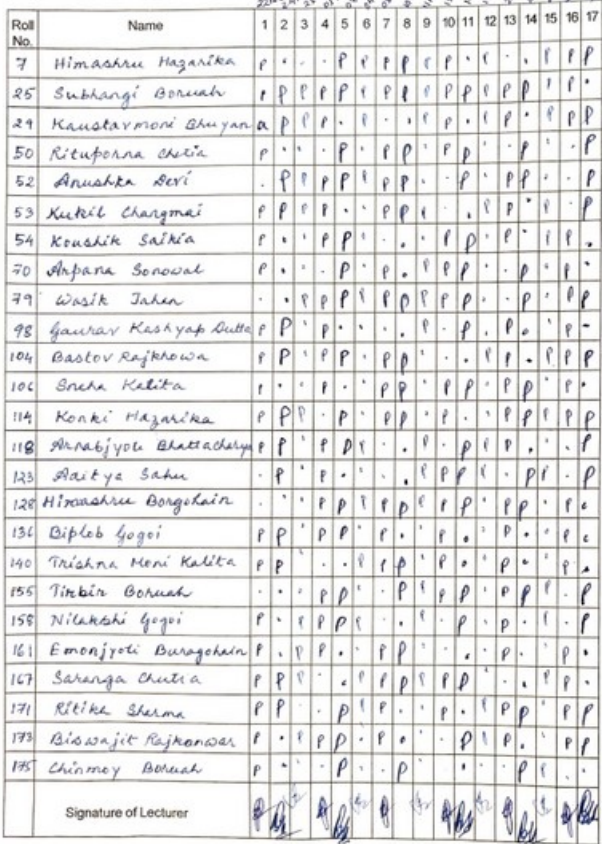 Roll No. Name 1 2 3 4 5 6 7 8 9 10 11 12 13 14 15 16 17
7 Himashru Hazarika P . . . P P P P P P . P . . P P P
25 Subhangi Boruah P P P P P P P P P P P P P P . P .
29 Kaustavmoni Bhuyan a P P P . P . . P P . P P . P P P
50 Rituporna Chetia P . . . P . P P . P P . . P . . P
52 Anushka Devi . P P P P P P P . . P . P P . . P
53 Kukil Changmai P P P P . . P P P . . P P . P . P
54 Koushik Saikia P . . P P . . . . P P . P . P P .
70 Arpana Sonowal P . . . P . P . P P P . . P . P .
79 Wasik Jahan . . P P P P P P P P P . . P . P P
98 Gaurav Kashyap Dutta P P . P . . . . P . P . P . . P -
104 Bastov Rajkhowa P P . P P . P P . . . P P . P P P
106 Sneha Kalita P . . P . . P P . P P . P P . P .
114 Konki Hazarika P P P . P . P P . P . . P P P P P
118 Arnabjyoti Bhattacharya P P . P P P . . P . P P P . . . P
123 Aditya Sahu . P . P . . . . P P P P . P P . P
128 Himashru Borgohain . . . P P P P P P P P . P P . P .
136 Biplob Gogoi P P . P P . P . . P . . P . . P .
140 Trishna Moni Kalita P P . . . P P P . P . . P . . P .
155 Timbir Boruah . . . P P . . P P P P . P P P . P
158 Nilakshi Gogoi P . P P P P . . P . P . P . P . P
161 Emonjyoti Buragohain P . P P . . P P . . . . P . . P .
167 Saranga Chutia P P P . . P P P P P P . . . P P .
171 Ritika Sharma P P . . P P . . . P . P P P . P P
173 Biswajit Rajkonwar P . P P P . P . . . P P P . . P P
175 Chinmoy Boruah P . . . P . . P . . . . . P P . .
Signature of Lecturer